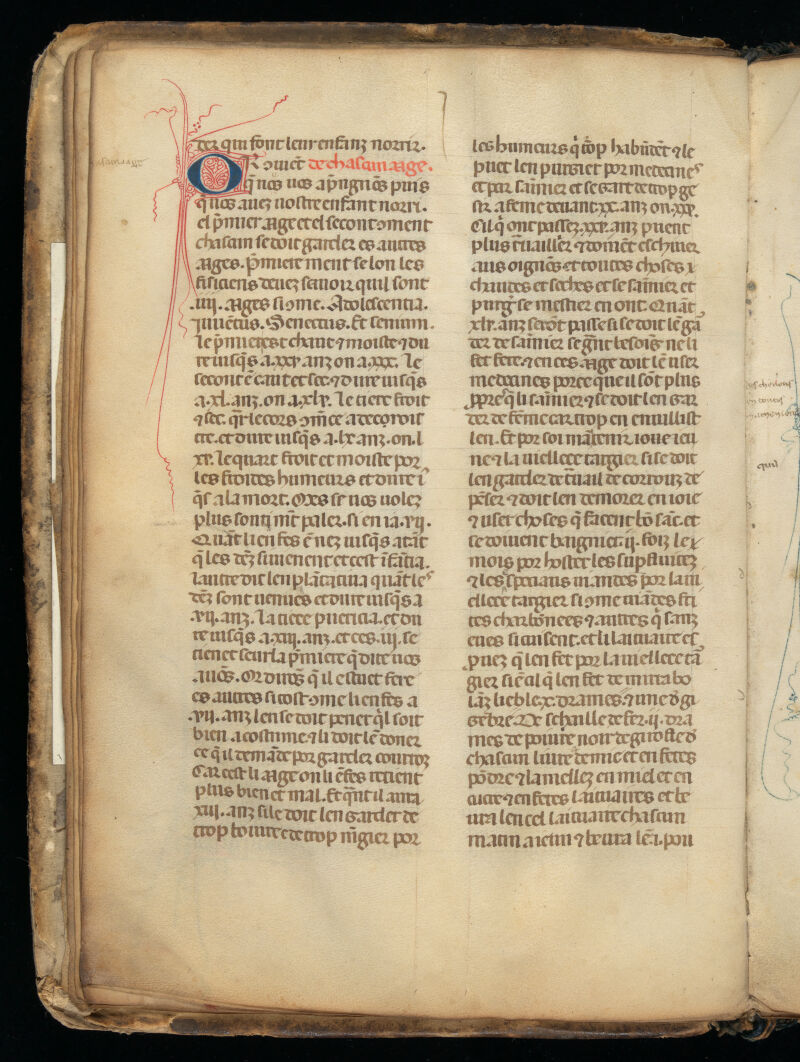 der qui font leur enfanz norrir.
Or couient de chascun aage.
q̃ nos uos ap̃ngnõs puis
q̃ uos auez uostre enfant norri.
el p̃mier aage et el second ꝯment
chascun se doit garder es autres
aages. p̃mierement selon les
fisiciens deuez sauoir quil sont
.iiij. aages si ꝯme. Adolescentia.
Juuẽtus. Senectus. Et senium.
le p̃mier est chaut ⁊ moiste ⁊ du
re iusq̃s a .xxv anz ou a .xxx. le
second ẽ caut et sec. ⁊ dure iusq̃s
a .xl. anz. ou a .xlv. Le tierz froit
⁊ sec. q̃r le cors ꝯmẽce a decrois
tre. et dure iusq̃s a .lx anz. ou .l
xv. Le quart froit et moiste por
les froides humeurs et dure i
q̃s a la mort. Mes se uos uolez
plus sont m̃t paler. si en i a .vij.
Quãt li enfes ẽ nez iusq̃s atãt
q̃ les dẽz li uienent et cest ĩfãtia.
Lautre dit len plãtatiua quãt les
dẽz sont uenues et dure iusq̃s a
.vij. anz. La tierce puericia. et du
re iusq̃s a .xiiij. anz. et ces .iij. se
tienent seur la p̃miere q̃ dite uos
auõs. Or dirõs q̃ il estuet fere
es autres si tost ꝯme li enfes a
.vij. anz len se doit pener q̃l soit
bien acostume ⁊ li doit lẽ doner
ce q̃ il demãde por garder courroz
Car cest li aage ou li ẽfes retient
plus bien et mal. Et q̃nt il aura
xiiij. anz si le doit len garder de
trop boiure et de trop mẽgier por
les humeurs q̃ trop habũdẽt ⁊ le
puet len purgier por medecines
et par sainier et se gart de trop ge
sir a feme deuant .xx. anz ou .xxv.
Cil q̃ ont passez .xxv. anz puent
plus trauaillier ⁊ doiuẽt eschiuer
aus oignõs et toutes choses t
chaudes et seches et se sainier et
purgr se mestier en ont. Quãt
.xlv. anz serõt passe si se doit lẽ gar
der de sainier se grãt besoig ne li
fet fere. ⁊ en ces aage doit lẽ user
medecines por ce que il sõt plus
ꝓpre q̃ li sainier ⁊ se doit len gar
der de feme car trop en enuillist
len. Et por soi mãtenir ioue ieu
ne ⁊ la uiellece targier si se doit
len garder de trauail de corrouz de
pẽser ⁊ doit len demorer en ioie
⁊ user choses q̃ facent bõ sãc. et
se doiuent baignier .ij. foiz le
mois por hoster les supfluitez
⁊ les speciaus uiandes por la ui
ellece targier si ꝯme uiãdes fri
tes charbonees ⁊ autres q̃ sanz
eues si cuisent. et li laituaire est
ꝓuez q̃ len fet por la uiellece tar
gier si ẽ al q̃ len fet de mirabo
lãz lieble .x. drames. ⁊ une de gi
genbre. De schaille de fer .ij. dra
mes de poiure noir de girofle de
chascun liure demie et en feres
podre ⁊ la mellez en miel et en
cucre ⁊ en feres laituaires et be
ura len cel laituaire chascun
matin a ieun ⁊ beura lẽ .i. pou